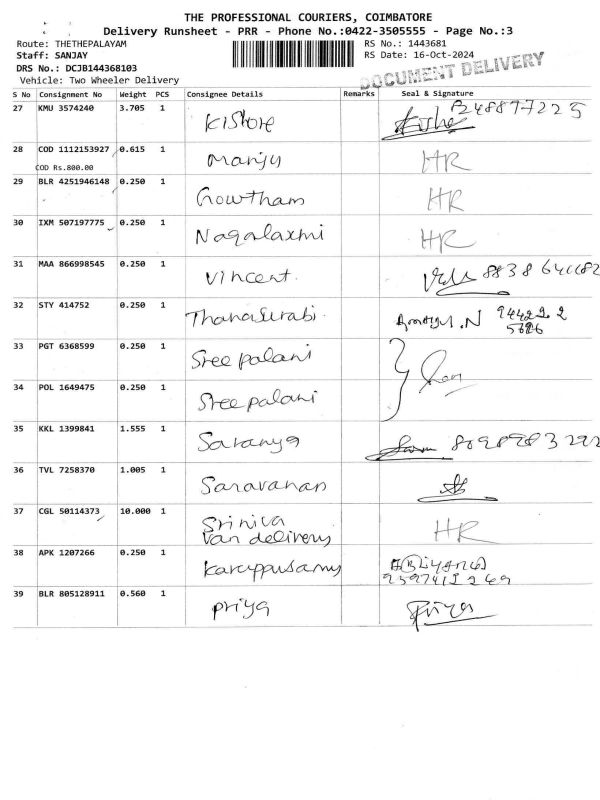 THE PROFESSIONAL COURIERS, COIMBATORE
Delivery Runsheet - PRR - Phone No.:0422-3505555 - Page No.:3
Route: THETHEPALAYAM RS No.: 1443681
Staff: SANJAY RS Date: 16-Oct-2024
DRS No.: DCJB144368103
DOCUMENT DELIVERY
Vehicle: Two Wheeler Delivery
S No Consignment No Weight PCS Consignee Details Remarks Seal & Signature
27 KMU 3574240 3.705 1 Kishore
28 COD 1112153927 0.615 1 Manju HR
COD Rs.800.00
29 BLR 4251946148 0.250 1 Gowtham HR
30 IXM 507197775 0.250 1 Nagalaxmi HR
31 MAA 866998545 0.250 1 Vincent
32 STY 414752 0.250 1
33 PGT 6368599 0.250 1 Sree palani
34 POL 1649475 0.250 1 Sree palani
35 KKL 1399841 1.555 1 Saranya
36 TVL 7258370 1.005 1 Saravanan
37 CGL 50114373 10.000 1 Sriniva HR
van delivery
38 APK 1207266 0.250 1 Karuppusamy
39 BLR 805128911 0.560 1 priya Priya